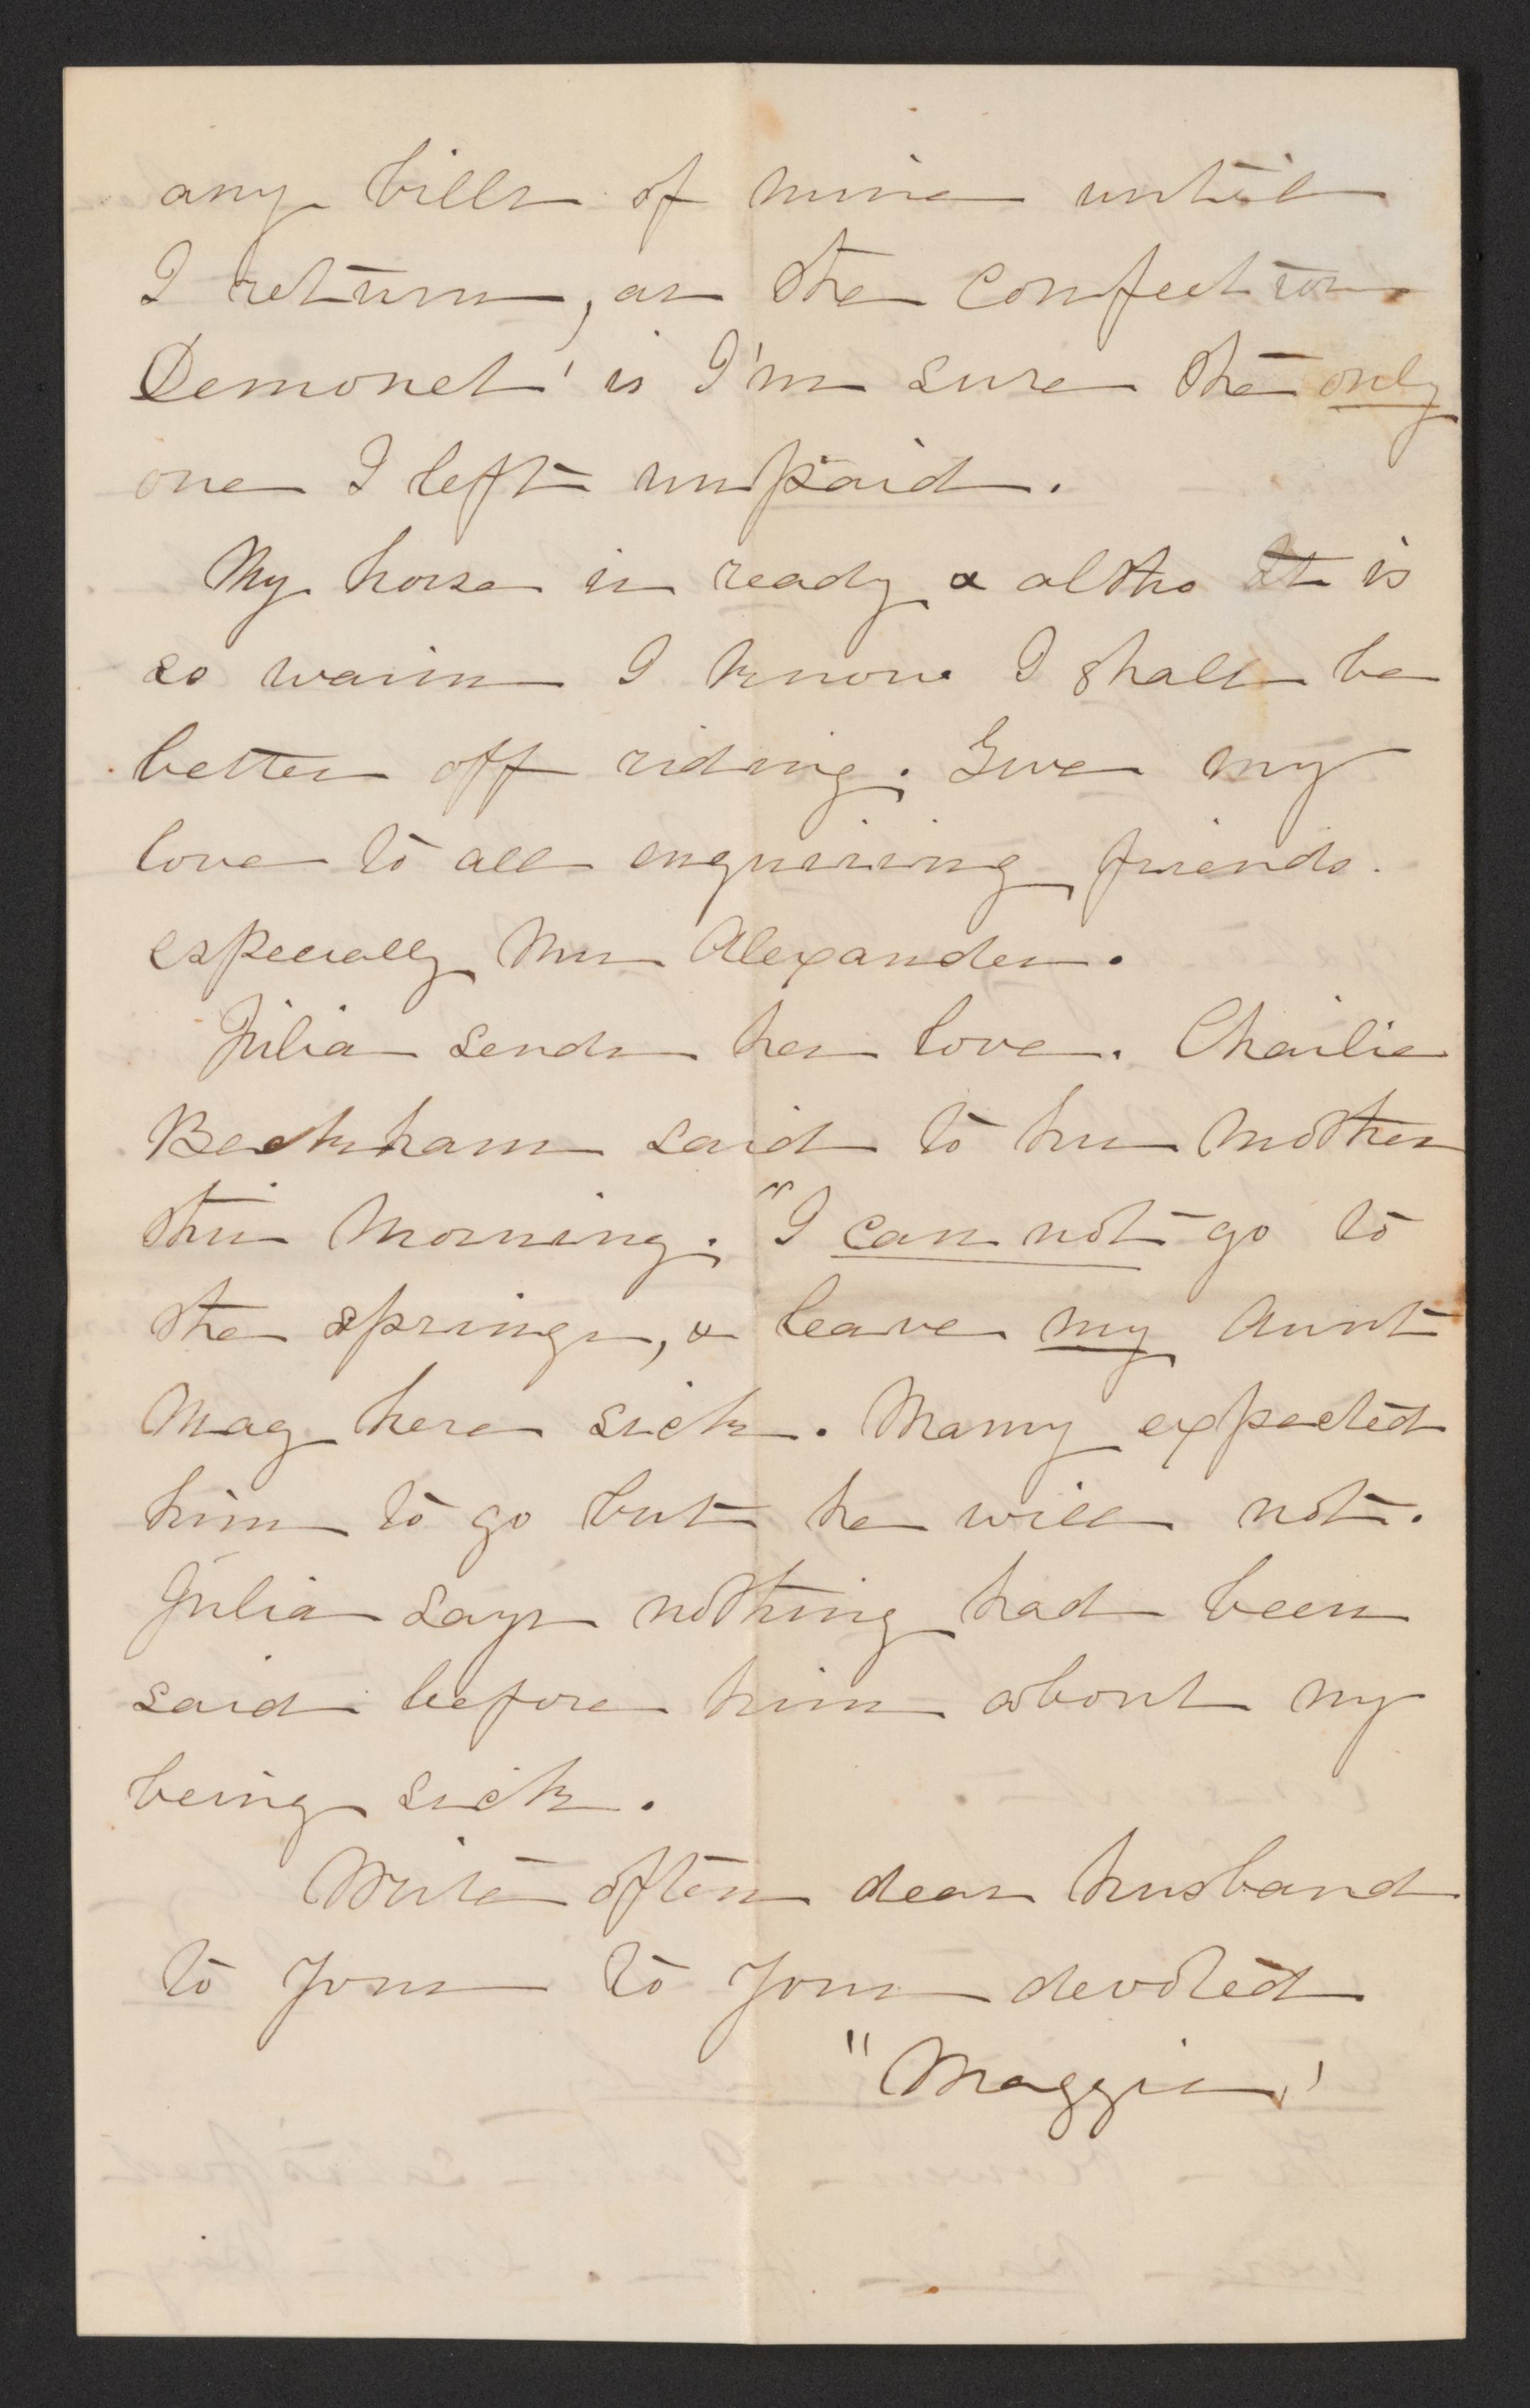 any bills of mine until
I return, as the confection
Demonet' is I'm sure the only
one I left unpaid.
My horse is ready & altho it is
so warm I know I shall be
better off riding. Give my
love to all enquiring friends.
especially Mrs Alexander.
Julia sends her love. Charlie
Beckham said to his mother
this morning. "I can not go to
the springs, & leave my Aunt
Mag here sick. Mamy expected
him to go but he will not.
Julia says nothing had been
said before him about my
being sick.
Write often dear husband
to your to your devoted
"Maggie"